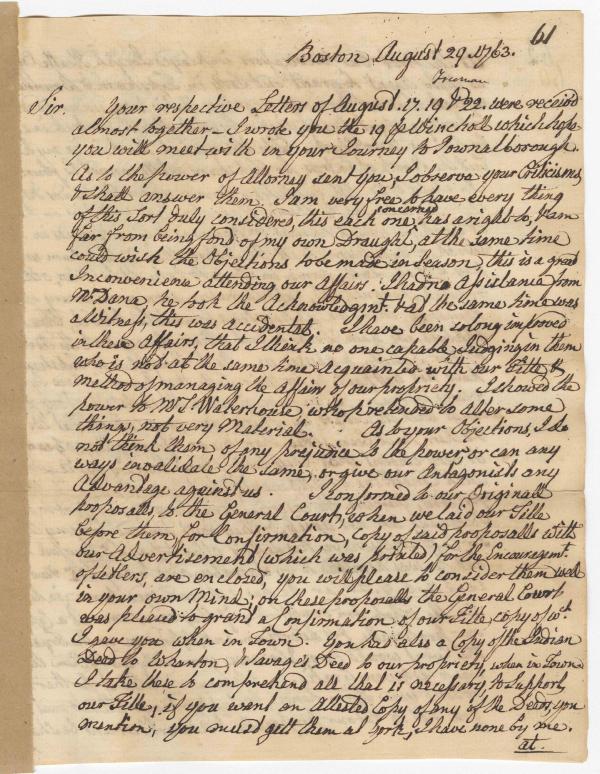 61
Boston August 29. 1763.
Freeman
Sir. Your respective Letters of August. 17. 19 & 22. were receivd
almost together - I wrote you the 19 ⅌ Winchol which hope
you will meet with in your Journey to Pownalborough.
As to the power of Attorney sent you, I observe your Criticisms,
& shall answer them. I am very free to have every thing
of this sort duly considered, this each one concerned has a right to, & am
far from being fond of my own Draught, at the same time
could wish the Objections to be made in Season, this is a great
Inconvenience attending our Affairs. I had no Assistance from
Mr. Dana, he took the Acknowledgmt. & at the same time was
a Witness, this was accidental. I have been so long improved
in these Affairs, that I think no one capable Judging in them
who is not at the same time acquainted with our Title &
method of managing the Affairs of our propriety. I showed the
power to Mr. S. Waterhouse, who pretended to alter some
things, not very Material. As to your Objections, I do
not think them of any prejudice to the power or can any
ways invalidate the same, or give our Antagonists any
Advantage against us. I conformed to our Originall
proposalls to the General Court, when we laid our Title
before them, for Confirmation, Copy of said proposalls with
our Advertisement (which was printed) for the Encouragemt.
of settlers, are enclosed, you will please to consider them well
in your own Mind; on these proposalls the General Court
was pleased to grant a Confirmation of our Title, copy of wt.
I gave you when in Town. You had also a Copy of the Indian
Deed to Wharton, & Savage's Deed to our propriety, when in Town
I take these to comprehend all that is necessary, to support
our Title, if you want an Attested Copy of any of the Deeds, you
mention, you must gett them at York, I have none by me.
at.